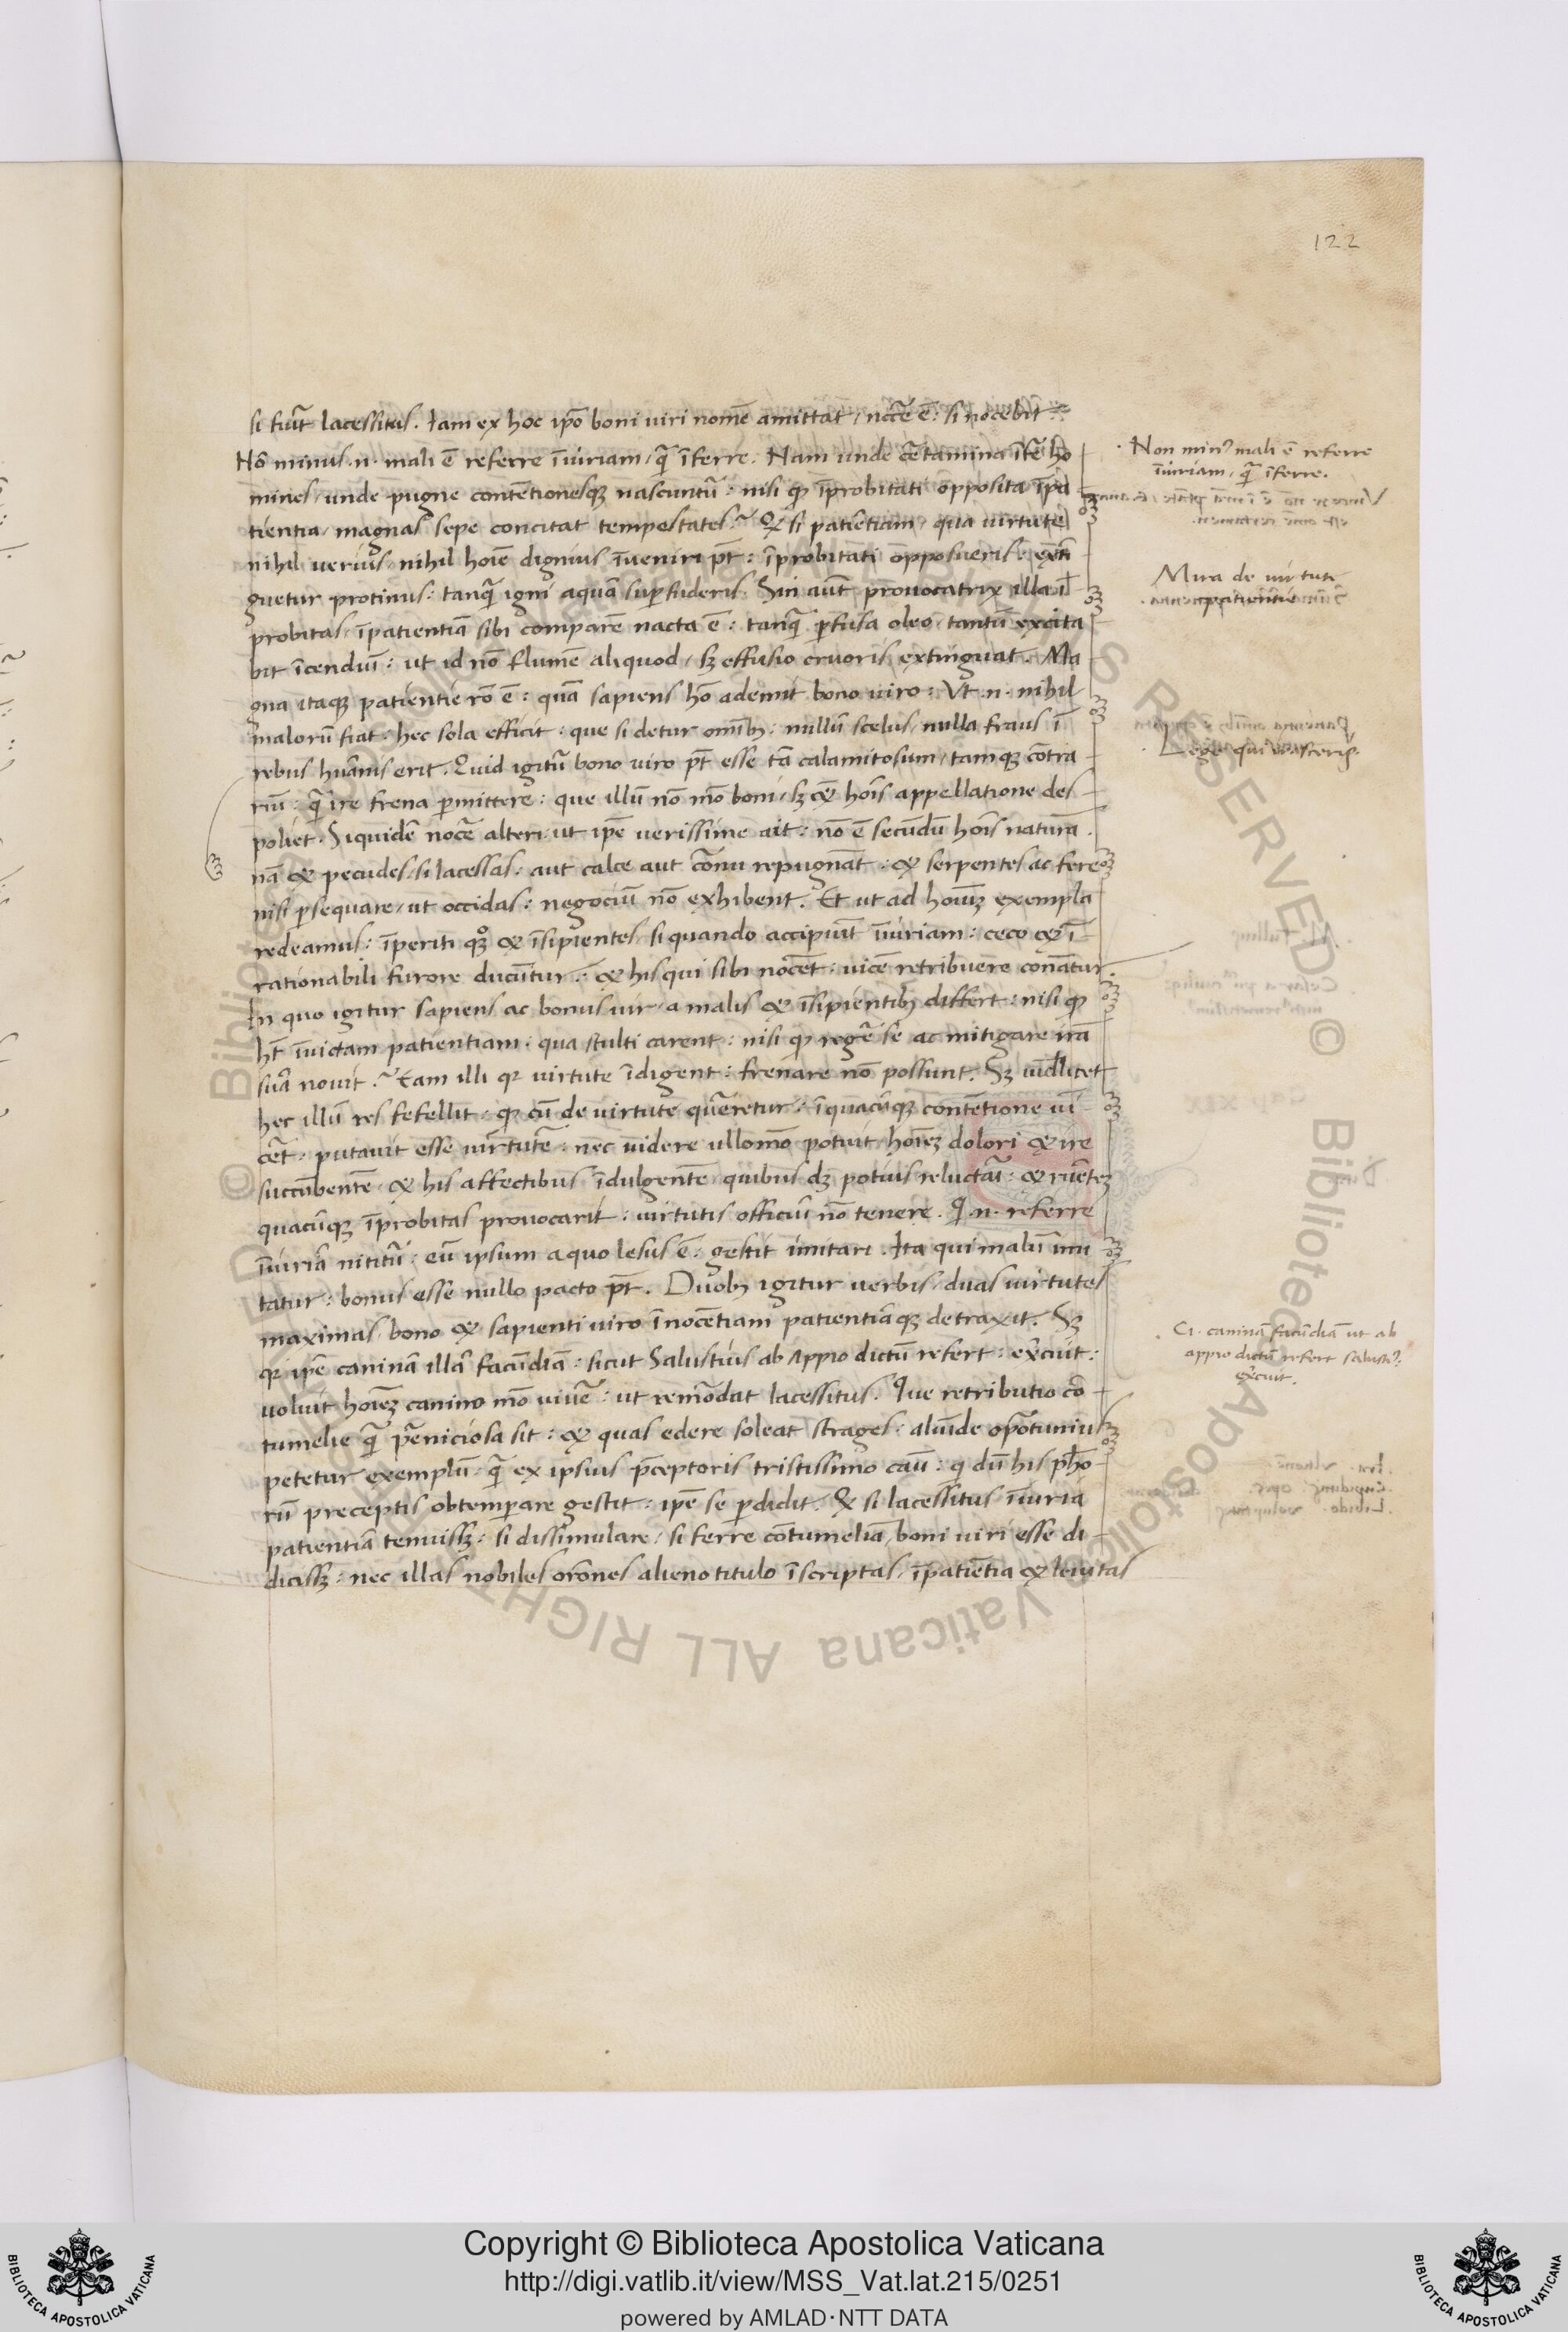 122
si fiūt lacessitus. Iam ex hoc ip̄o boni viri nomē amittat, nēce ē: si nocebit
Nō minus .n. mali ē referre īiuriam, quā īferre. Nam unde cētamina ītē ho
mines, unde pugne contētionesq; nascuntū: nisi qꝫ īprobitati opposita īpa
tientia, magnas sepe concitat tempestates? Qꝫ si patiētiam, qua virtute
nihil verius, nihil hoīe dignius īveniri pōt: īprobitati opposueris: extī
guetur protinus: tanquā igni aquā suꝑfuderis. Sin aūt provocatrix illa ī
probitas, īpatientiā sibi comparē nacta ē: tanquā ꝑfusa oleo, tantū excita
bit īcendiū: ut id nō flumē aliquod, sꝫ effusio cruoris extinguat. Ma
gna itaqꝫ patientie rō ē: quā sapiens hō ademit bono viro: Vt .n. nihil
malorū fiat: hec sola efficit: que si detur omībꝫ: nullū scelus, nulla fraus ī
rebus hūanis erit. Quid igitū bono viro pōt esse tā calamitosum, tamqꝫ cōtra
riū: quā ire frena ꝑmittere: que illū nō mō boni, sꝫ & hoīs appellatione des
poliet. Siquidē nocē alteri, ut ip̄e verissime ait: nō ē secūdū hoīs naturā.
nā & pecudes, si lacessas: aut calce aut cōnu repugnāt: & serpentes ac fere
nisi ꝑsequare, ut occidas: negociū nō exhibent. Et ut ad hoīuꝫ exempla
redeamus: īperiti qꝫ & īsipientes, si quando accipiūt īiuriam: ceco & ī
rationabili furore ducūtur: & his qui sibi nocēt: vicē retribuere conātur.
In quo igitur sapiens ac bonus vir, a malis & īsipientibꝫ differt: nisi qꝫ
ht īvictam patientiam, qua stulti carent: nisi qꝫ regē se ac mitigare irā
suā novit? Eam illi qꝛ virtute īdigent: frenare nō possunt. Sꝫ vidlicet
hec illū res fefellit: qꝫ cū de virtute quēretur: ī quacūqꝫ contētione vī
cēt: putavit esse virtutē: nec videre ullomō potuit, hoīeꝫ dolori & ire
succūbentē, & his affectibus īdulgentē, quibus dꝫ potius reluctāi: & ruēteꝫ
quacūqꝫ īprobitas provocarit: virtutis officiū nō tenere. Qī .n. referre
īiuriā nititū: eū ipsum a quo lesus ē: gestit imitari. Ita qui malū imi
tatur: bonus esse nullo pacto pōt. Duobꝫ igitur verbis, duas virtutes
maximas, bono & sapienti viro īnocētiam patientiāqꝫ detraxit. Sꝫ
qꝛ ip̄e caninā illā facūdiā: sicut Salustius ab Appio dictū refert: exēcuit:
voluit hoīeꝫ canino mō vivē: ut remōdat lacessitus. Que retributio cō
tumelie quā pēniciosa sit: & quas edere soleat strages: aliūde opōtunius
petetur exemplū, quā ex ipsius p̄ceptoris tristissimo cāū: q dū his ph̄o
rū preceptis obtemꝑare gestit: ip̄e se ꝑdidit. Qꝫ si lacessitus īiuria
patientiā tenuissꝫ: si dissimulare, si ferre cōtumeliā, boni viri esse di
dicissꝫ: nec illas nobiles orōnes alieno titulo īscriptas, īpatiētia & levitas
· Non minꝰ mali ē referre
īiuriam, quā īferre.
Mira de virtute
patiētie
Lege qui
· Ci. caninā facūdiā ut ab
appio dictū refert Salustiꝰ.
exēcuit.
© Biblioteca Apostolica Vaticana ALL RIGHTS RESERVED
Copyright © Biblioteca Apostolica Vaticana
http://digi.vatlib.it/view/MSS_Vat.lat.215/0251
powered by AMLAD·NTT DATA
BIBLIOTECA APOSTOLICA VATICANA
BIBLIOTECA APOSTOLICA VATICANA